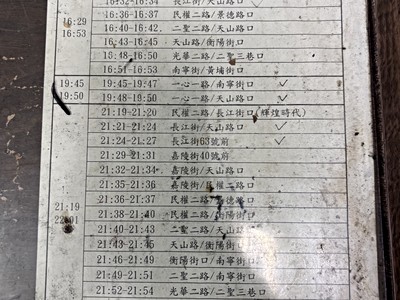 16:32-16:34 長江街/天山路口 ✓
16:29
16:53
16:36-16:37 民權二路/景德路口
16:40-16:42 二聖二路/天山路口
16:43-16:45 天山路/衡陽街口
16:48-16:50 光華二路/二聖三巷口
16:51-16:53 南寧街/黃埔街口
19:45
19:50
19:45-19:47 一心一路/南寧街口 ✓
19:48-19:50 一心一路/天山路口 ✓
21:19-21:20 民權二路/長江街口(輝煌時代)
21:21-21:24 長江街/天山路口 ✓
21:24-21:27 長江街63號前 ✓
21:29-21:31 嘉陵街40號前
21:32-21:34 嘉陵街/天山路口
21:35-21:36 嘉陵街/民權二路口
21:19
21:36-21:37 民權二路/景德路口
21:38-21:40 民權二路/衡陽街口
21:40-21:43 二聖二路/天山路口
21:43-21:45 天山路/衡陽街口
21:46-21:49 衡陽街口/南寧街口
21:49-21:51 二聖二路/南寧街口
21:52-21:54 光華二路/二聖三巷口